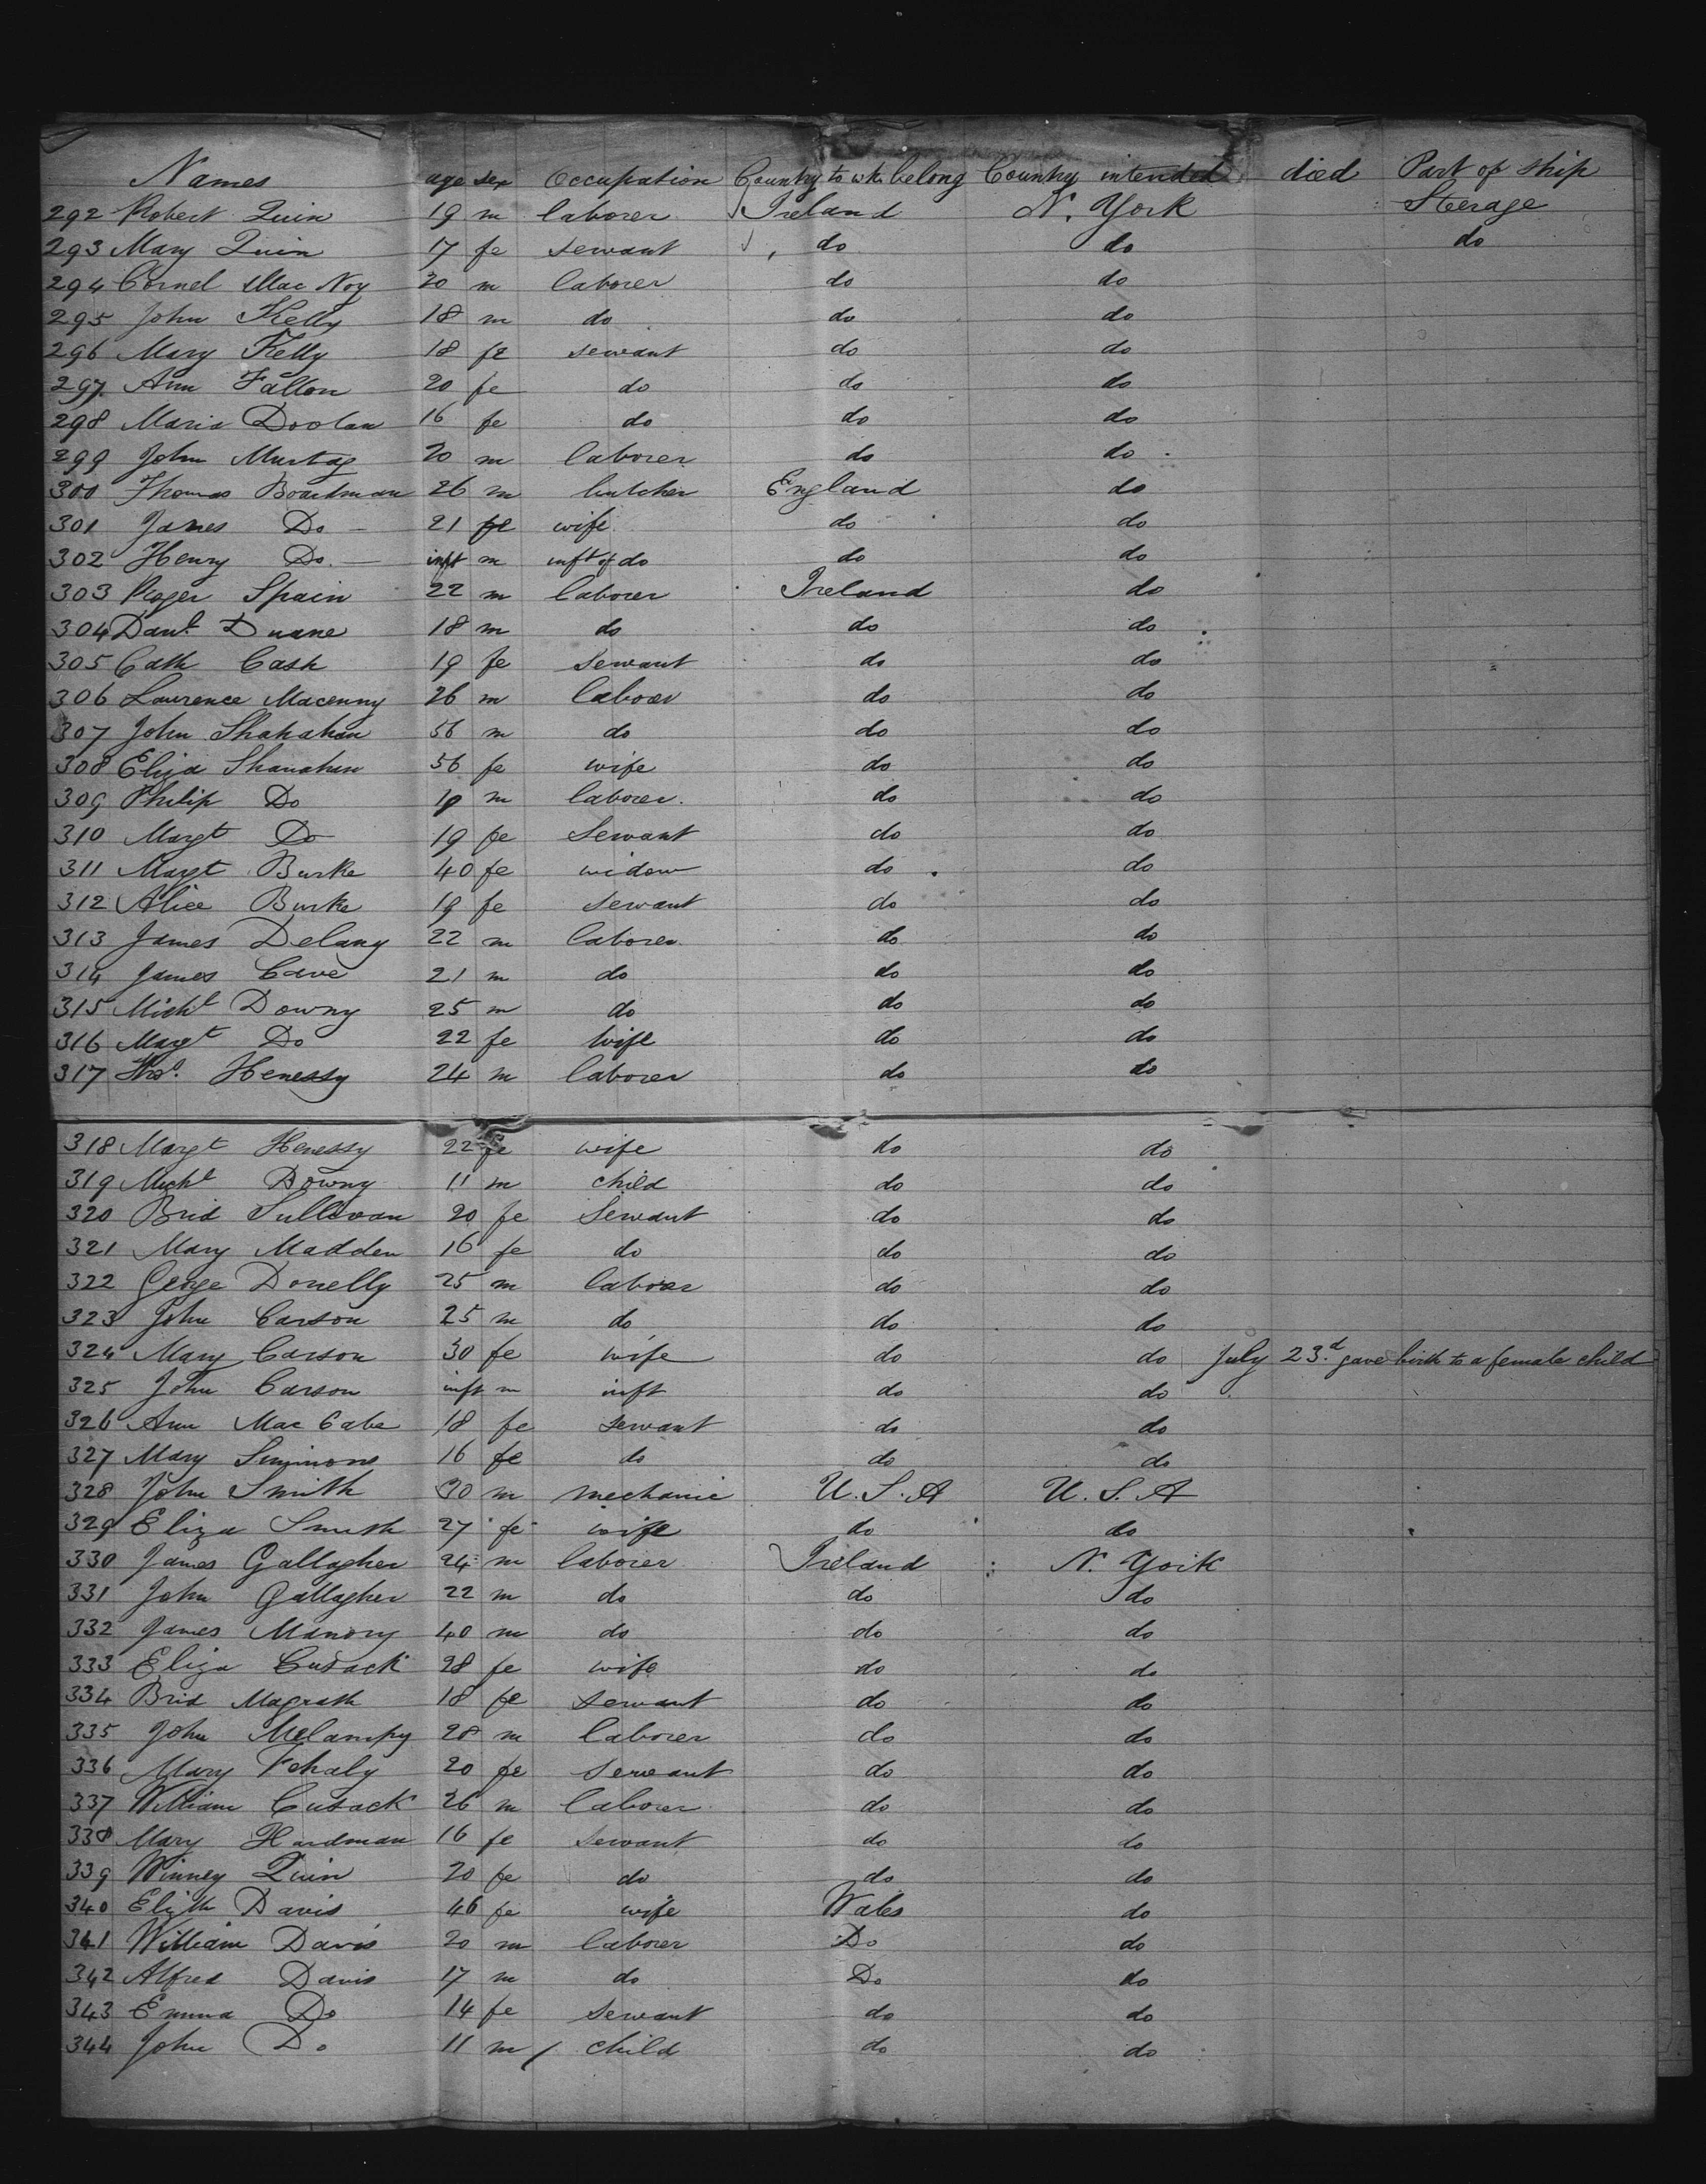 Names age sex Occupation Country to wh. belong Country intended died Part of ship
292 Robert Quin 19 m laborer Ireland N. York Sterage
293 Mary Quin 17 fe servant do do do
294 Cornel Mac Noy 20 m laborer do do
295 John Kelly 18 m do do do
296 Mary Kelly 18 fe servant do do
297 Ann Fallon 20 fe do do do
298 Maria Doolan 16 fe do do do
299 John Murtag 20 m laborer do do
300 Thomas Boardman 26 m butcher England do
301 James Do 21 fe wife do do
302 Henry Do. inft m inft of do do do
303 Roger Spain 22 m laborer Ireland do
304 Danl. Duane 18 m do do do
305 Cath Cash 19 fe servant do do
306 Lawrence Macenny 26 m laborer do do
307 John Shahahan 56 m do do do
308 Eliza Shanahan 56 fe wife do do
309 Philip Do m laborer. do do
310 Margt Do 19 fe Servant do do
311 Margt Burke 40 fe widow do do
312 Alice Burke 19 fe servant do do
313 James Delany 22 m laborer do do
314 James Cave 21 m do do do
315 Michl Downy 25 m do do do
316 Margt Do 22 fe wife do do
317 Thos. Henessy 24 m laborer do do
318 Margt Henessy 22 fe wife do do
319 Michl Downy 11 m child do do
320 Brid Sullivan 20 fe Servant do do
321 Mary Madden 16 fe do do do
322 George Donelly 25 m laborer do do
323 John Carson 25 m do do do
324 Mary Carson 30 fe wife do do July 23.d gave birth to a female child
325 John Carson inft m inft do do
326 Ann Mac Cabe 18 fe servant do do
327 Mary Simmons 16 fe do do do
328 John Smith 30 m mechanic U.S.A U.S.A
329 Eliza Smith 27 fe wife do do
330 James Gallagher 24 m laborer Ireland N. York
331 John Gallagher 22 m do do do
332 James Manory 40 m do do do
333 Eliza Cusack 28 fe wife do do
334 Brid Magrath 18 fe servant do do
335 John Melampy 28 m laborer do do
336 Mary Fehaly 20 fe servant do do
337 William Cusack 26 m laborer do do
338 Mary Hardman 16 fe servant do do
339 Winney Quin 20 fe do do do
340 Elizth Davis 46 fe wife Wales do
341 William Davis 20 m laborer Do do
342 Alfred Davis 17 m do Do do
343 Emma Do 14 fe servant do do
344 John Do 11 m child do do